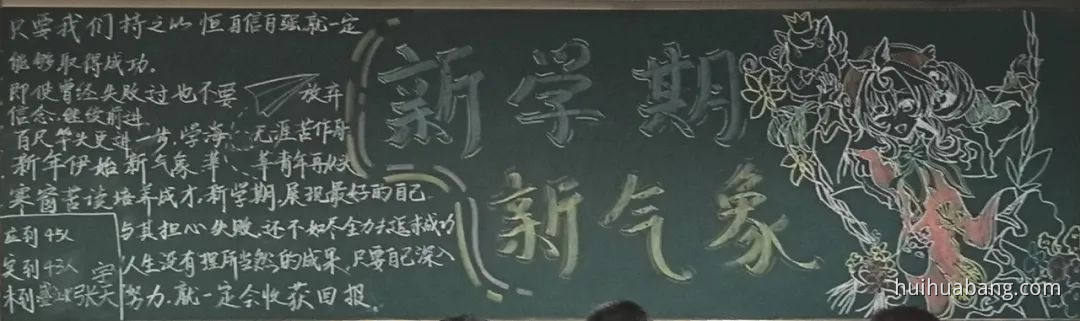 只要我们持之以恒自信自强就一定
能够取得成功。
即使曾经失败过也不要放弃
信念,继续前进
百尺竿头更进一步,学海无涯苦作舟
新年伊始新气象,莘莘青年再
寒窗苦读培养成才,新学期,展现最好的自己
与其担心失败,还不如尽全力去追求成功
人生没有理所当然的成果,只要自己深入
努力,就一定会收获回报。
应到45人
实到43人
未到 张天宇
新学期
新气象
huihuabang.com